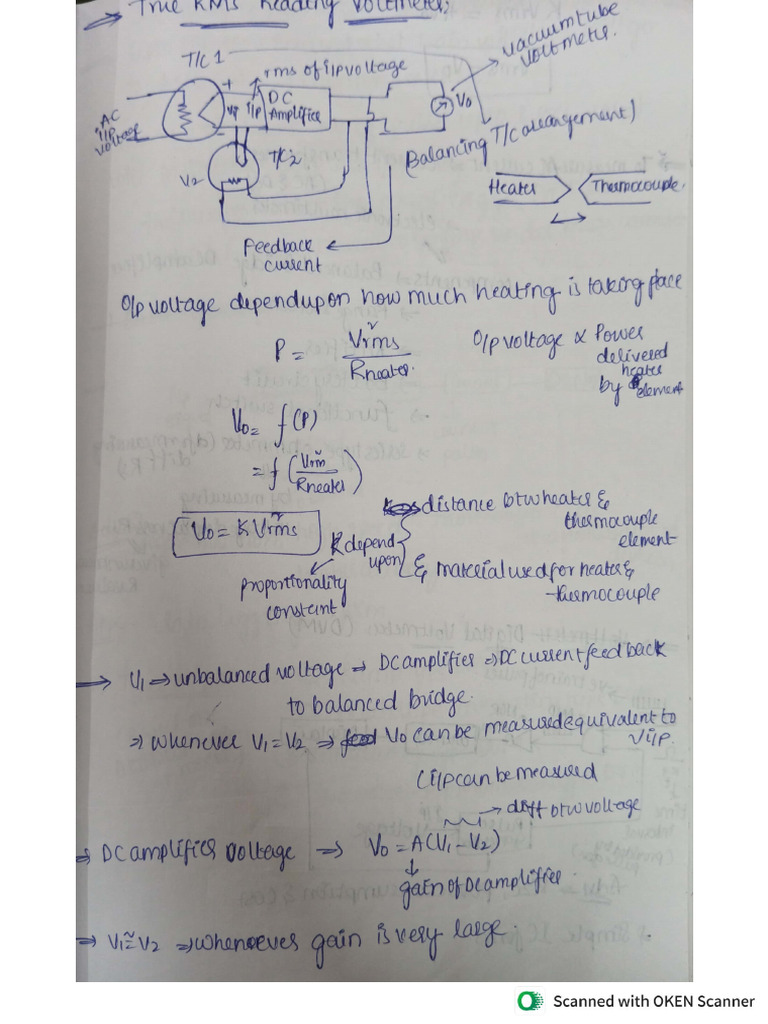 → True RMS Reading Voltmeter;
T/C 1
vacuum tube
voltmeter.
rms of i/p voltage
AC
i/p
voltage
+
V1
i/p
DC
Amplifier
V0
T/C 2
V2
(Balancing T/C arrangement)
Heater
Thermocouple.
Feedback
current
O/p voltage depend upon how much heating is taking place
P = V²rms / Rheater.
O/P voltage ∝ Power
delivered
heater
by element
V0 = f(P)
= f (V²rm / Rheater)
V0 = K V²rms
K depend
upon
distance b/w heater &
thermocouple
element
& material used for heater &
thermocouple
proportionality
constant
→ V1 → unbalanced voltage → DC amplifier ⇒ DC current feed back
to balanced bridge.
⇒ whenever V1 = V2 ⇒ V0 can be measured equivalent to
Vi/p.
(i/p can be measured
→ diff b/w voltage
⇒ DC amplifier voltage ⇒ V0 = A(V1 - V2)
↓
gain of DC amplifier.
⇒ V1 ≅ V2 ⇒ whenever gain is very large.
Scanned with OKEN Scanner